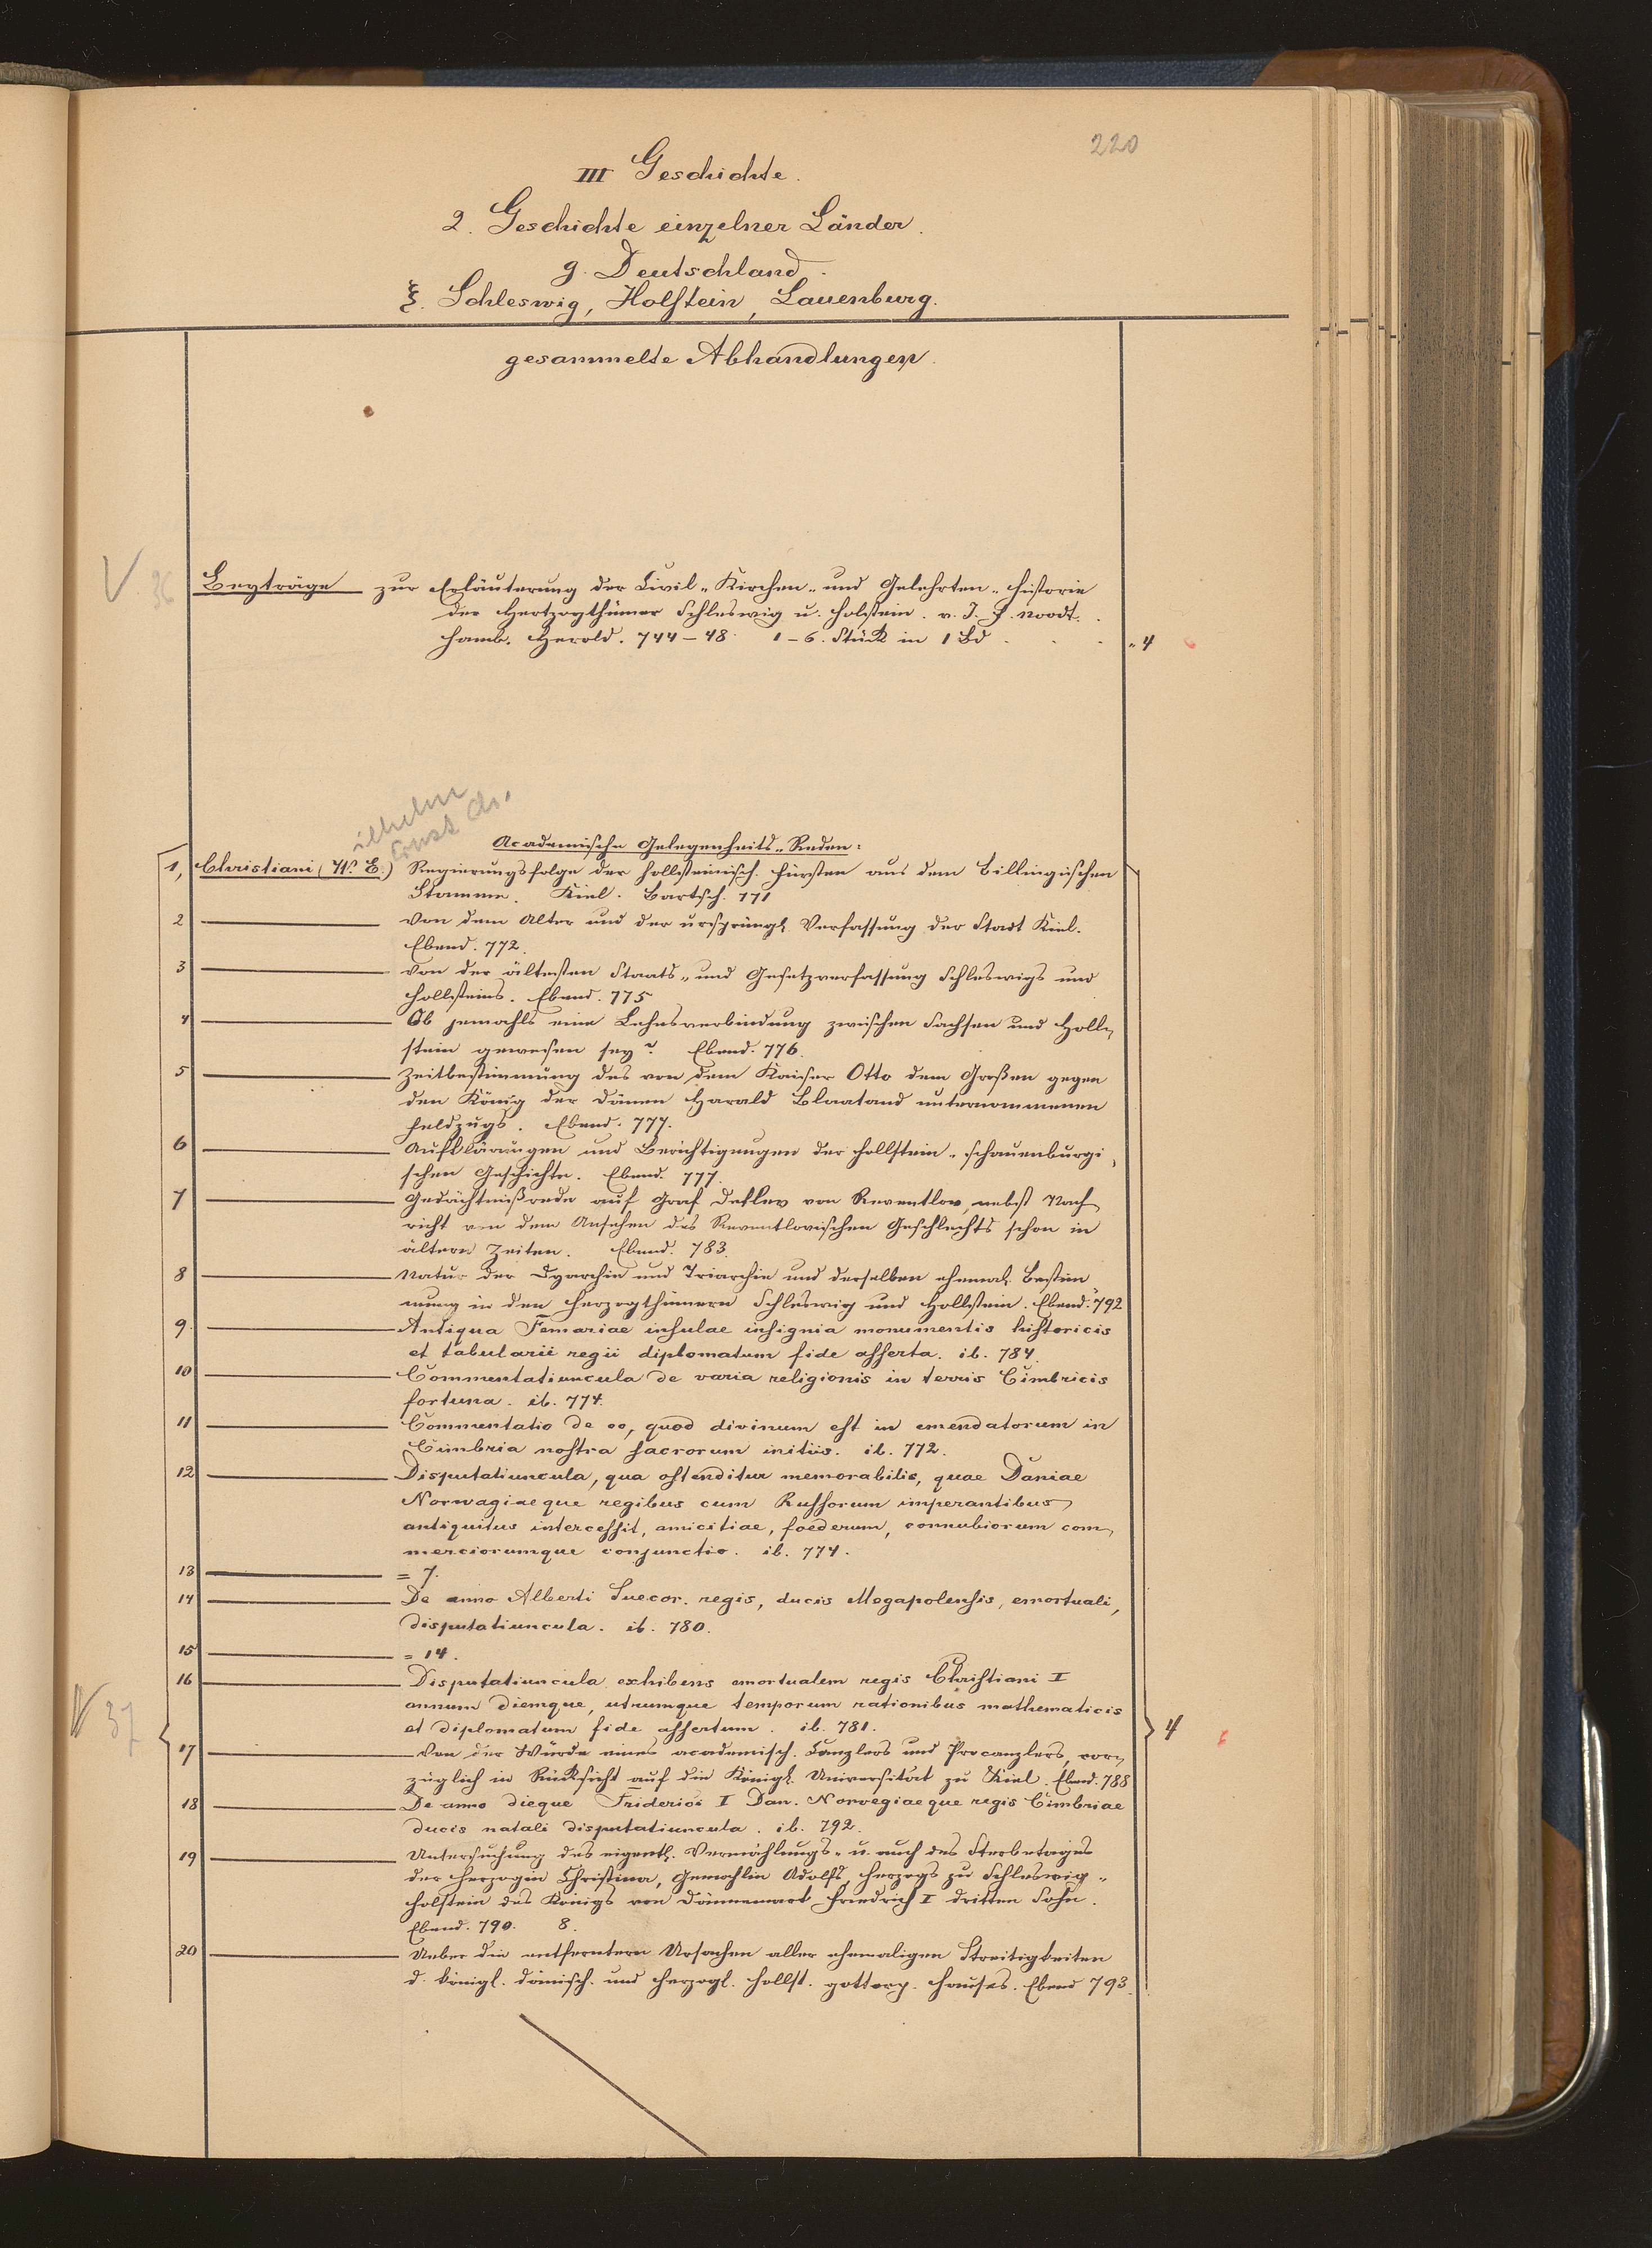 220
III Geschichte.
2. Geschichte einzelner Länder.
g. Deutschland.
ξ. Schleswig, Holstein, Lauenburg.
gesammelte Abhandlungen.
V 36 Beyträge zur Erläuterung der Civil-Kirchen- und Gelehrten-Historie
der Hertzogthümer Schleswig u. Holstein. v. J. F. Noodt.
Hamb. Herold. 744-48. 1-6. Stück in 1 Bd . . . „4 6
ilhelm
Ernst Chr.
Academische Gelegenheits-Reden:
1, Christiani (W. E.) Regierungsfolge der hollsteinisch. Fürsten aus dem Billingischen
Stamme. Kiel. Bartsch. 771
2 Von dem Alter und der ursprüngl. Verfassung der Stadt Kiel.
Ebend. 772.
3 Von der ältesten Staats- und Gesetzverfassung Schleswigs und
Hollsteins. Ebend. 775
4 Ob jemahls eine Lehnsverbindung zwischen Sachsen und Holl-
stein gewesen sey? Ebend. 776.
5 Zeitbestimmung des von dem Kaiser Otto dem Großen gegen
den König der Dänen Harald Blaatand unternommenen
Feldzugs. Ebend. 777.
6 Aufklärungen und Berichtigungen der hollstein-schauenburgi-
schen Geschichte. Ebend. 777.
7 Gedächtnißrede auf Graf Detlev von Reventlow, nebst Nach-
richt von dem Ansehen des Reventlovischen Geschlechts schon in
ältern Zeiten. Ebend. 783.
8 Natur der Dyarchie und Triarchie und derselben ehemal. Bestim-
mung in den Herzogthümern Schleswig und Hollstein. Ebend. 792
9. Antiqua Femariae insulae insignia monumentis historicis
et tabularii regii diplomatum fide asserta. ib. 784.
10 Commentatiuncula de varia religionis in terris Cimbricis
fortuna. ib. 774.
11 Commentatio de eo, quod divinum est in emendatorum in
Cimbria nostra sacrorum initiis. ib. 772.
12 Disputatiuncula, qua ostenditur memorabilis, quae Daniae
Norwagiaeque regibus cum Russorum imperantibus
antiquitus intercessit, amicitiae, foederum, connubiorum com-
merciorumque conjunctio. ib. 774.
13 = 7.
14 De anno Alberti Suecor. regis, ducis Megapolensis, emortuali,
disputatiuncula. ib. 780.
15 = 14.
16 Disputatiuncula exhibens emortualem regis Christiani I
annum diemque, utrumque temporum rationibus mathematicis
et diplomatum fide assertum. ib. 781.
V 37 4 6
17 Von der Würde eines academisch. Canzlers und Procanzlers, vor-
züglich in Rücksicht auf die Königl. Universität zu Kiel. Ebend. 788
18 De anno dieque Friderici I Dan. Norvegiaeque regis Cimbriae
ducis natali disputatiuncula. ib. 792.
19 Untersuchung des eigentl. Vermählungs- u. auch des Sterbetages
der Herzogin Christina, Gemahlin Adolfs, Herzogs zu Schleswig-
Holstein des Königs von Dännemark Friedrich I dritten Sohn.
Ebend. 790. 8.
20 Ueber die entferntern Ursachen aller ehemaligen Streitigkeiten
d. königl. dänisch. und herzogl. hollst. gottorp. Hauses. Ebend 793.